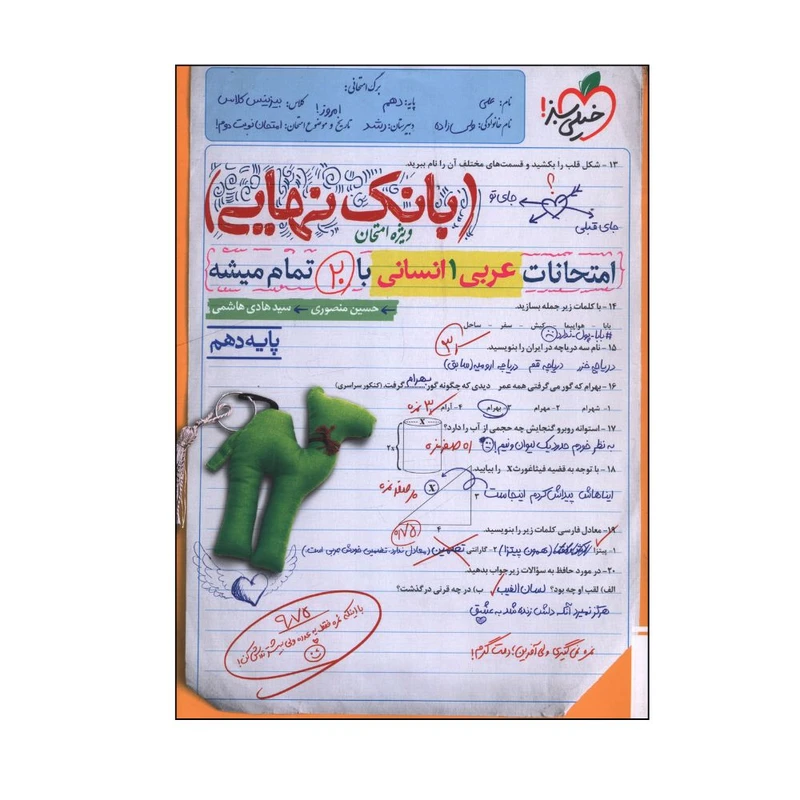 خیلی سبز!
برگ امتحانی:
نام: علی پایه: دهم امروز! کلاس: بیزینس کلاس
نام خانوادگی: ولی زاده دبیرستان: رشد تاریخ و موضوع امتحان: امتحان نوبت دوم!
۱۳- شکل قلب را بکشید و قسمت‌های مختلف آن را نام ببرید.
؟
جای تو
جای قبلی
(بانک نهایی)
ویژه امتحان
امتحانات عربی ۱ انسانی با ۲۰ تمام میشه
حسین منصوری ← سید هادی هاشمی
پایه دهم
۱۴- با کلمات زیر جمله بسازید.
بابا - هواپیما - کیش - سفر - ساحل
#بابا_پول_ندارد
۱۵- نام سه دریاچه در ایران را بنویسید.
دریاچه خزر دریاچه قم دریاچه ارومیه (سابق)
۱۶- بهرام که گور می‌گرفتی همه عمر دیدی که چگونه گور بهرام گرفت. (کنکور سراسری)
۱- شهرام ۲- مهرام ۳- بهرام ۴- آرام
۱۷- استوانه روبرو گنجایش چه حجمی از آب را دارد؟
X
2x
به نظر خودم حدود یک لیوان و نیم!
۱۸- با توجه به قضیه فیثاغورث X را بیابید.
ایناهاش پیداش کردم اینجاست
X
۳
۴
۱۹- معادل فارسی کلمات زیر را بنویسید.
۱- پیتزا (همون پیتزا) ۲- گارانتی تضمین (معادل ندارد. تضمین خودش عربی است.)
۲۰- در مورد حافظ به سؤالات زیر جواب بدهید.
الف) لقب او چه بود؟ لسان الغیب ب) در چه قرنی در گذشت؟
هرگز نمیرد آنکه دلش زنده شد به عشق
نمره نمی‌گیری ولی آفرین؛ دمت گرم!
۹/۷۵